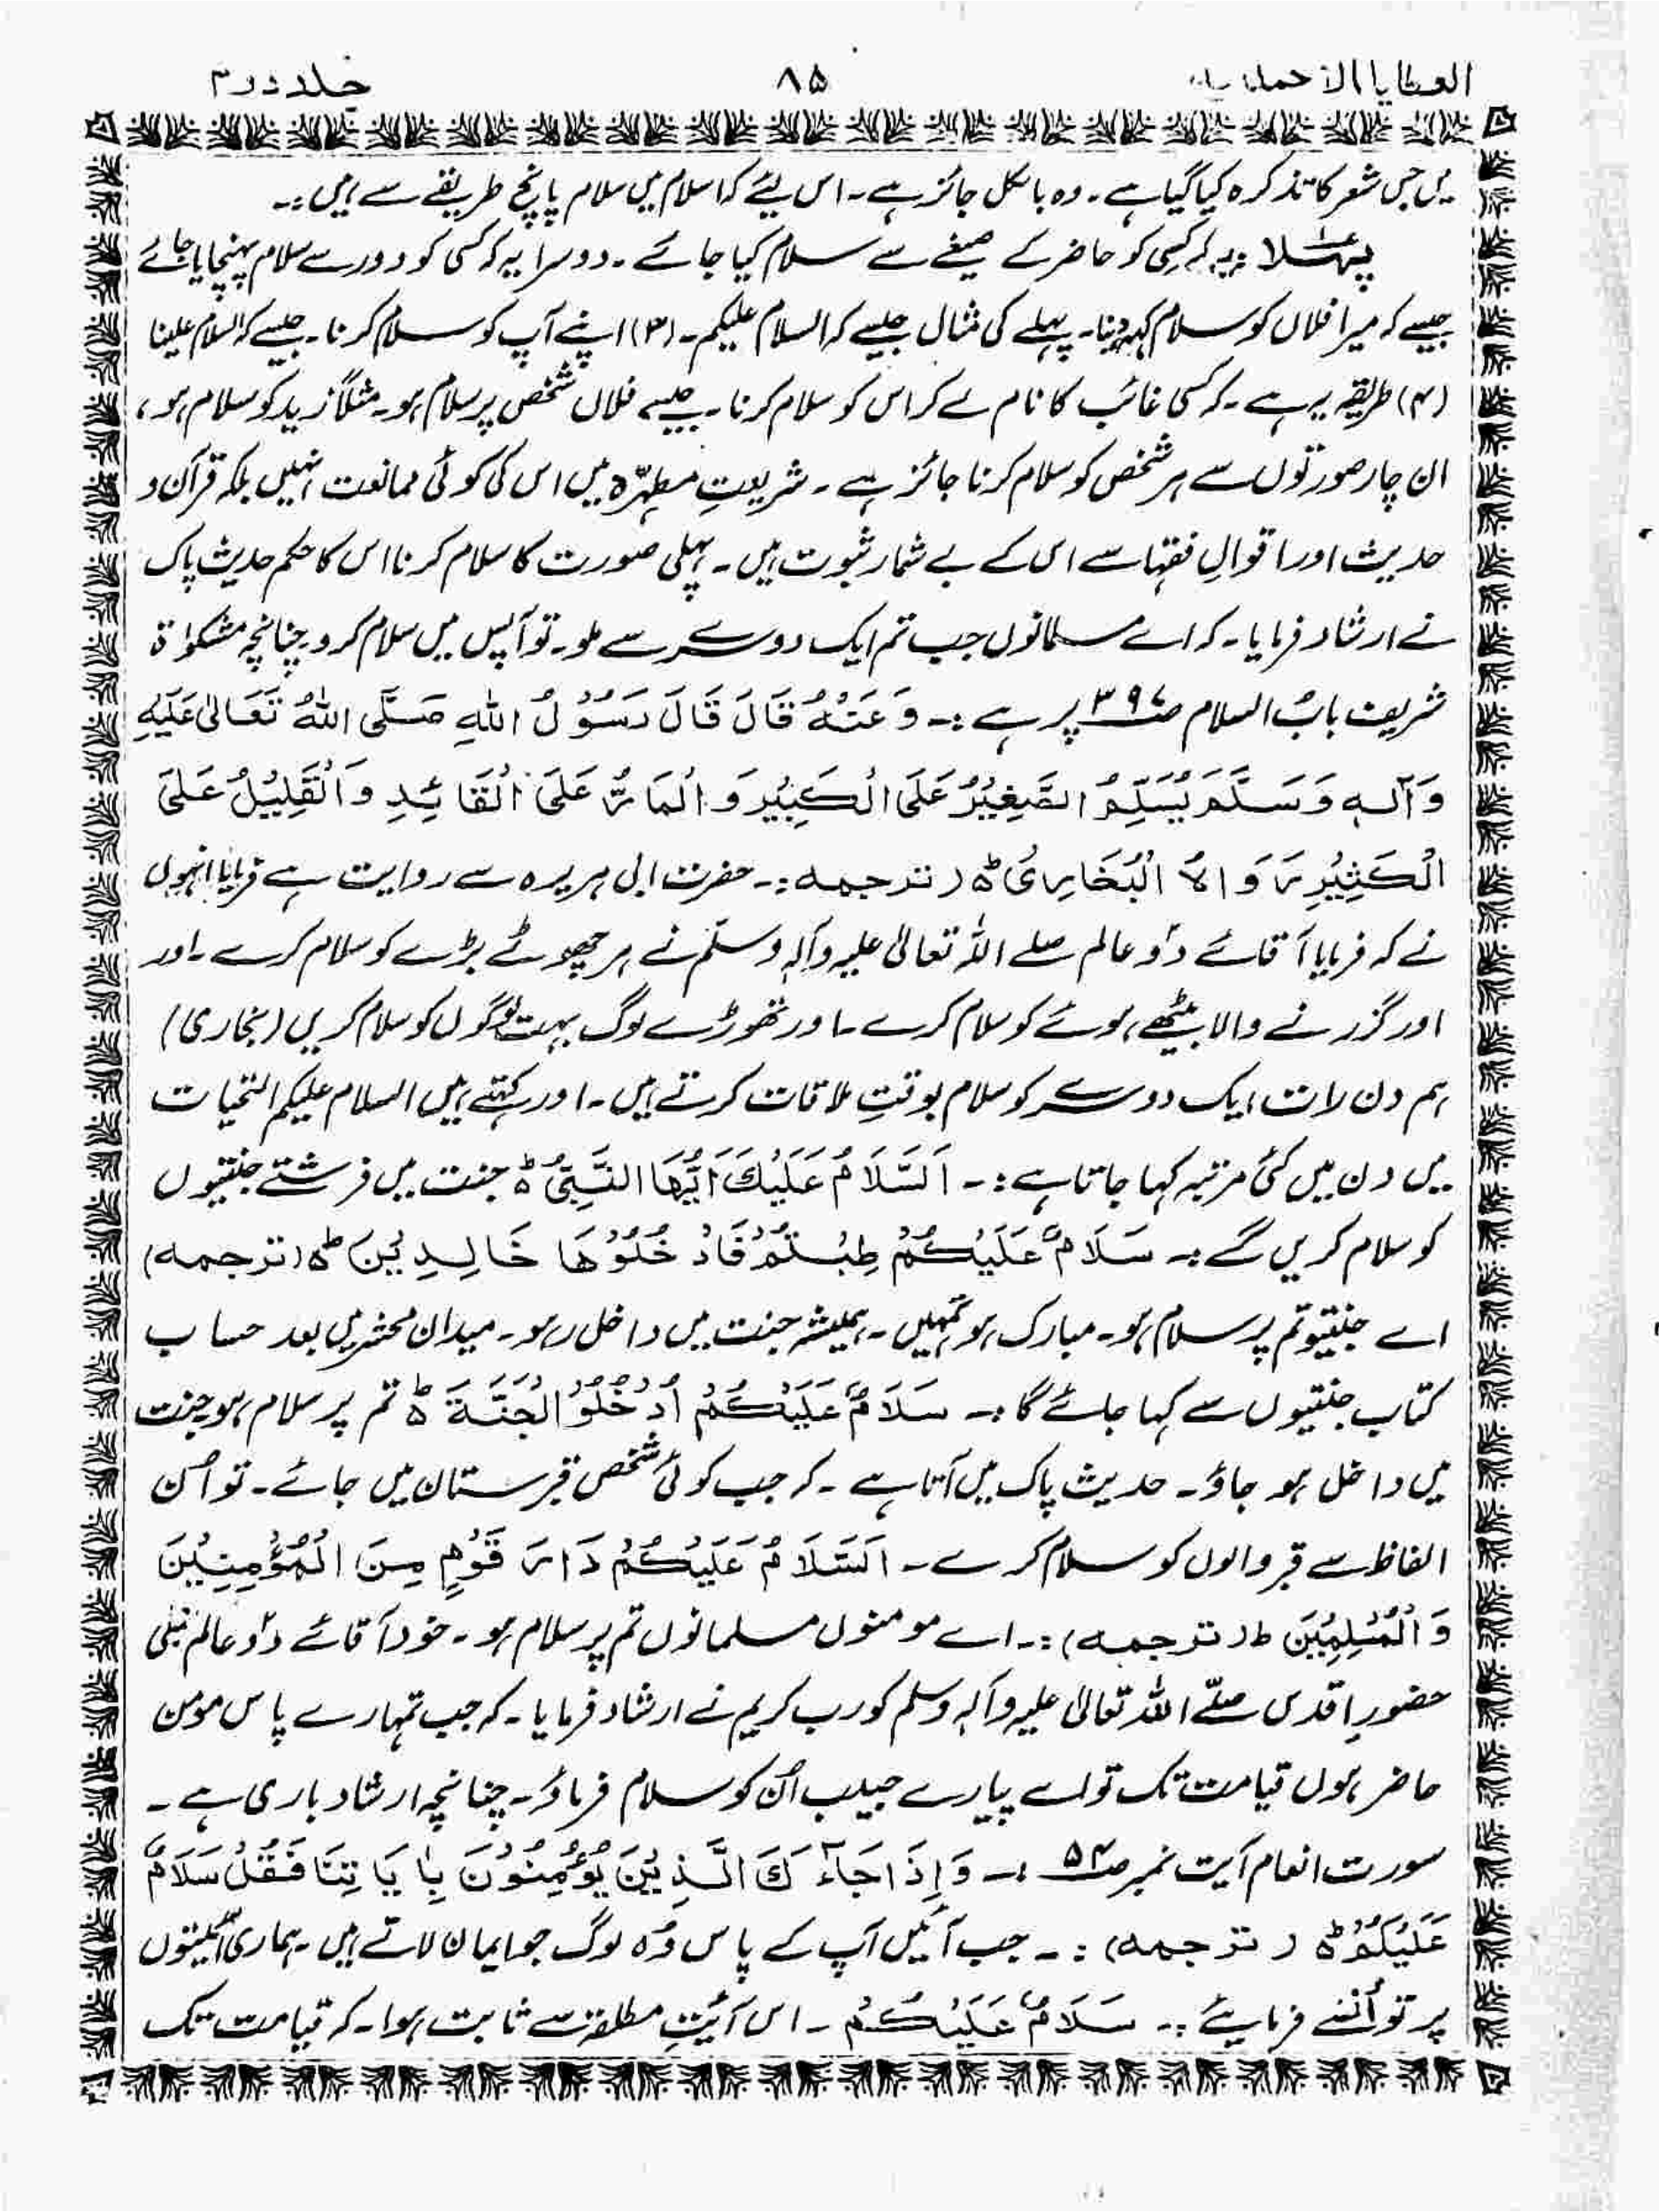 العطایا الاحمدیہ ۸۵ جلد دوم
میں جس شعر کا تذکرہ کیا گیا ہے۔ وہ بالکل جائز ہے۔ اس لیئے کہ اسلام میں سلام پانچ طریقے سے ہیں :۔
پہلا :یہ کہ کسی کو حاضر کے صیغے سے سلام کیا جائے ۔ دوسرا یہ کہ کسی کو دور سے سلام پہنچایا جائے
جیسے کہ میرا فلاں کو سلام کہہ دینا۔ پہلے کی مثال جیسے کہ السلام علیکم۔ (۳) اپنے آپ کو سلام کرنا۔ جیسے کہ السلام علینا
(۴) طریقہ یہ ہے ۔ کہ کسی غائب کا نام لے کر اس کو سلام کرنا ۔ جیسے فلاں شخص پر سلام ہو۔ مثلاً زید کو سلام ہو ،
ان چار صورتوں سے ہر شخص کو سلام کرنا جائز ہے ۔ شریعتِ مطہّرہ میں اس کی کوئی ممانعت نہیں بلکہ قرآن و
حدیث اور اقوالِ فقہا سے اس کے بے شمار ثبوت ہیں ۔ پہلی صورت کا سلام کرنا اس کا حکم حدیث پاک
نے ارشاد فرمایا ۔ کہ اے مسلمانوں جب تم ایک دوسرے سے ملو ۔ تو آپس میں سلام کرو ۔ چنانچہ مشکوٰۃ
شریف بابُ السلام صـ ۳۹۷ پر ہے :۔ وَ عَنْہُ قَالَ قَالَ رَسُوْلُ اللّٰہِ صَلَّی اللّٰہُ تَعَالٰی عَلَیْہِ
وَ آلِہٖ وَ سَلَّمَ یُسَلِّمُ الصَّغِیْرُ عَلَی الْکَبِیْرِ وَ الْمَارُّ عَلَی الْقَائِدِ وَ الْقَلِیْلُ عَلَی
الْکَثِیْرِ رَوَاہُ الْبُخَارِیُّ ہ ( ترجمہ :۔ حضرت ابی ہریرہ سے روایت ہے فرمایا انہوں
نے کہ فرمایا آقائے دو عالم صلے اللہ تعالیٰ علیہ وآلہٖ وسلّم نے ہر چھوٹے بڑے کو سلام کرے ۔ اور
اور گزرنے والا بیٹھے ہوئے کو سلام کرے ۔ اور تھوڑے لوگ بہت لوگوں کو سلام کریں (بخاری)
ہم دن رات ایک دوسرے کو سلام بوقتِ ملاقات کرتے ہیں ۔ اور کہتے ہیں السلام علیکم التحیات
میں دن میں کئی مرتبہ کہا جاتا ہے :۔ اَلسَّلَامُ عَلَیْکَ اَیُّہَا النَّبِیُّ ہ جنت میں فرشتے جنتیوں
کو سلام کریں گے :۔ سَلَامٌ عَلَیْکُمْ طِبْتُمْ فَادْ خُلُوْ ھَا خَالِدِیْنَ ہ (ترجمہ)
اے جنتیو تم پر سلام ہو۔ مبارک ہو تمہیں ۔ ہمیشہ جنت میں داخل رہو۔ میدان محشر میں بعد حساب
کتاب جنتیوں سے کہا جائے گا :۔ سَلَامٌ عَلَیْکُمْ اُدْخُلُوْ الْجَنَّۃَ ہ تم پر سلام ہو جنت
میں داخل ہو جاؤ ۔ حدیث پاک میں آتا ہے ۔ کہ جب کوئی شخص قبرستان میں جائے ۔ تو اُن
الفاظ سے قبر والوں کو سلام کرے ۔ اَلسَّلَامُ عَلَیْکُمْ دَارَ قَوْمٍ مِنَ الْمُؤْمِنِیْنَ
وَ الْمُسْلِمِیْنَ ط ( ترجمہ ) :۔ اے مومنوں مسلمانوں تم پر سلام ہو ۔ خود آقائے دو عالم نبی
حضورِ اقدس صلّے اللہ تعالیٰ علیہ وآلہٖ وسلم کو رب کریم نے ارشاد فرمایا ۔ کہ جب تمہارے پاس مومن
حاضر ہوں قیامت تک تو اے پیارے حبیب اُن کو سلام فرماؤ ۔ چنانچہ ارشاد باری ہے ۔
سورت انعام آیت نمبر صـ ۵۴ :۔ وَ اِذَا جَآءَ کَ الَّذِیْنَ یُؤْمِنُوْنَ بِاٰ یَا تِنَا فَقُلْ سَلَامٌ
عَلَیْکُمْ ہ ( ترجمہ ) :۔ جب آئیں آپ کے پاس وُہ لوگ جو ایمان لاتے ہیں ۔ ہماری آیتوں
پر تو اُنسے فرمایئے :۔ سَلَامٌ عَلَیْکُمْ ۔ اس آیتِ مطلقہ سے ثابت ہوا ۔ کہ قیامت تک